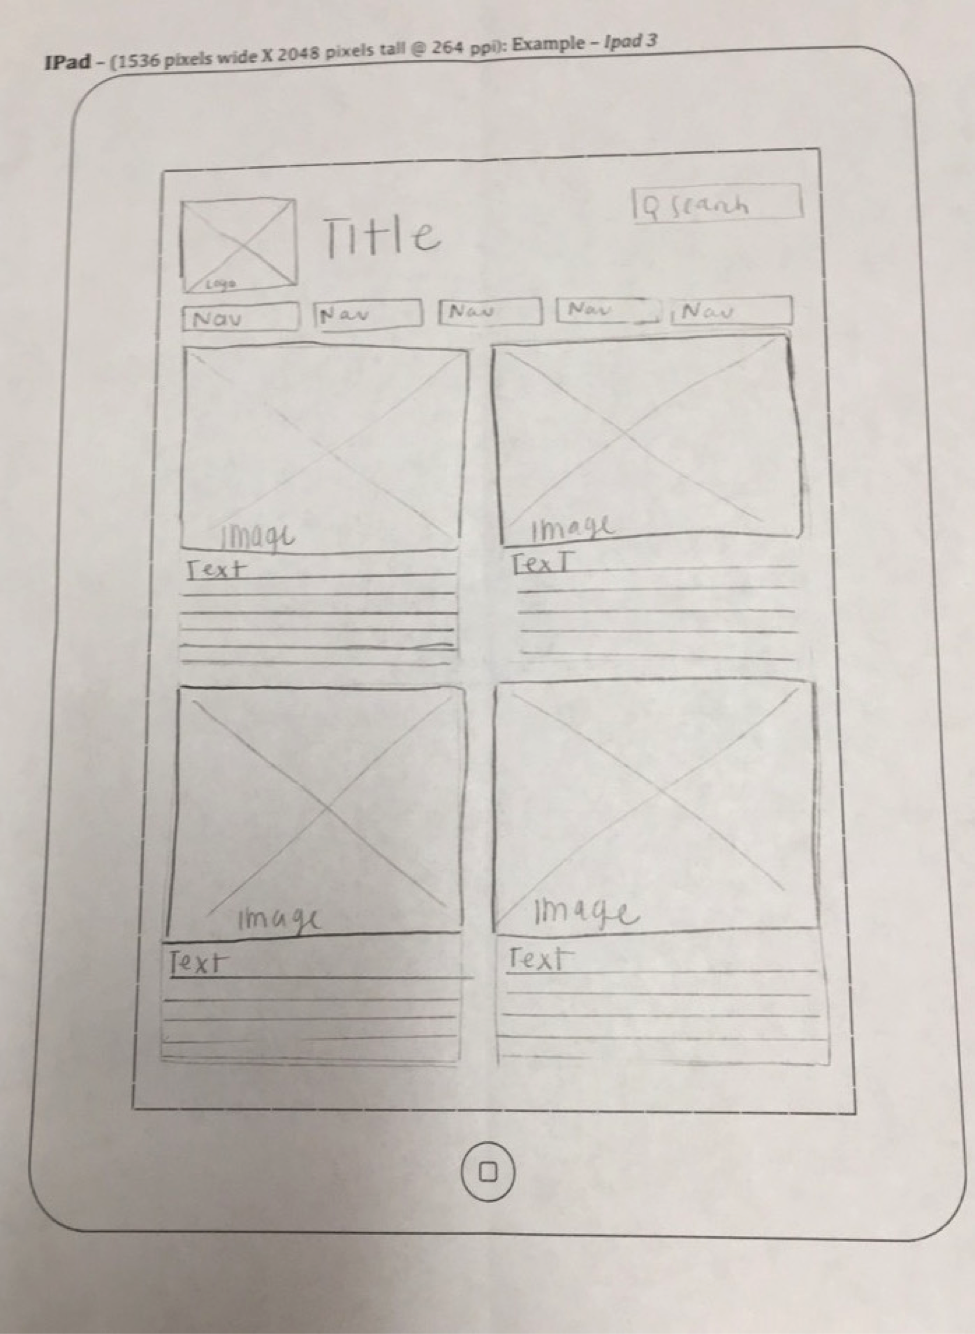 IPad – (1536 pixels wide X 2048 pixels tall @ 264 ppi): Example – Ipad 3
Search
Title
Logo
Nav Nav Nav Nav Nav
Image Image
Text Text
Image Image
Text Text